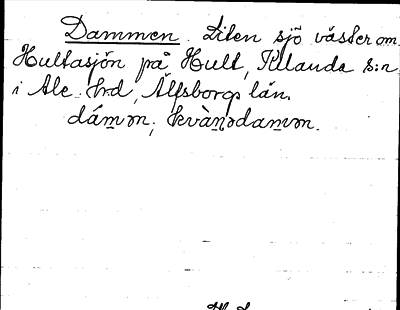 Dammen. Liten sjö väster om
Hultasjön på Hult, Kilanda s:n
i Ale hrd, Älfsborgs län.
dámm, kvàn̠ədam̠m.